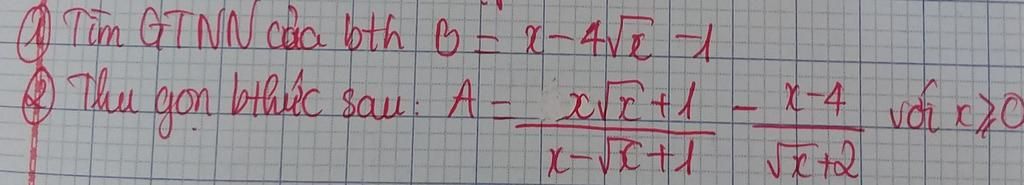 ① Tìm GTNN của bth B = x - 4√x - 1
② Thu gọn bthức sau: A = (x√x + 1)/(x - √x + 1) - (x - 4)/(√x + 2) với x ⩾ 0